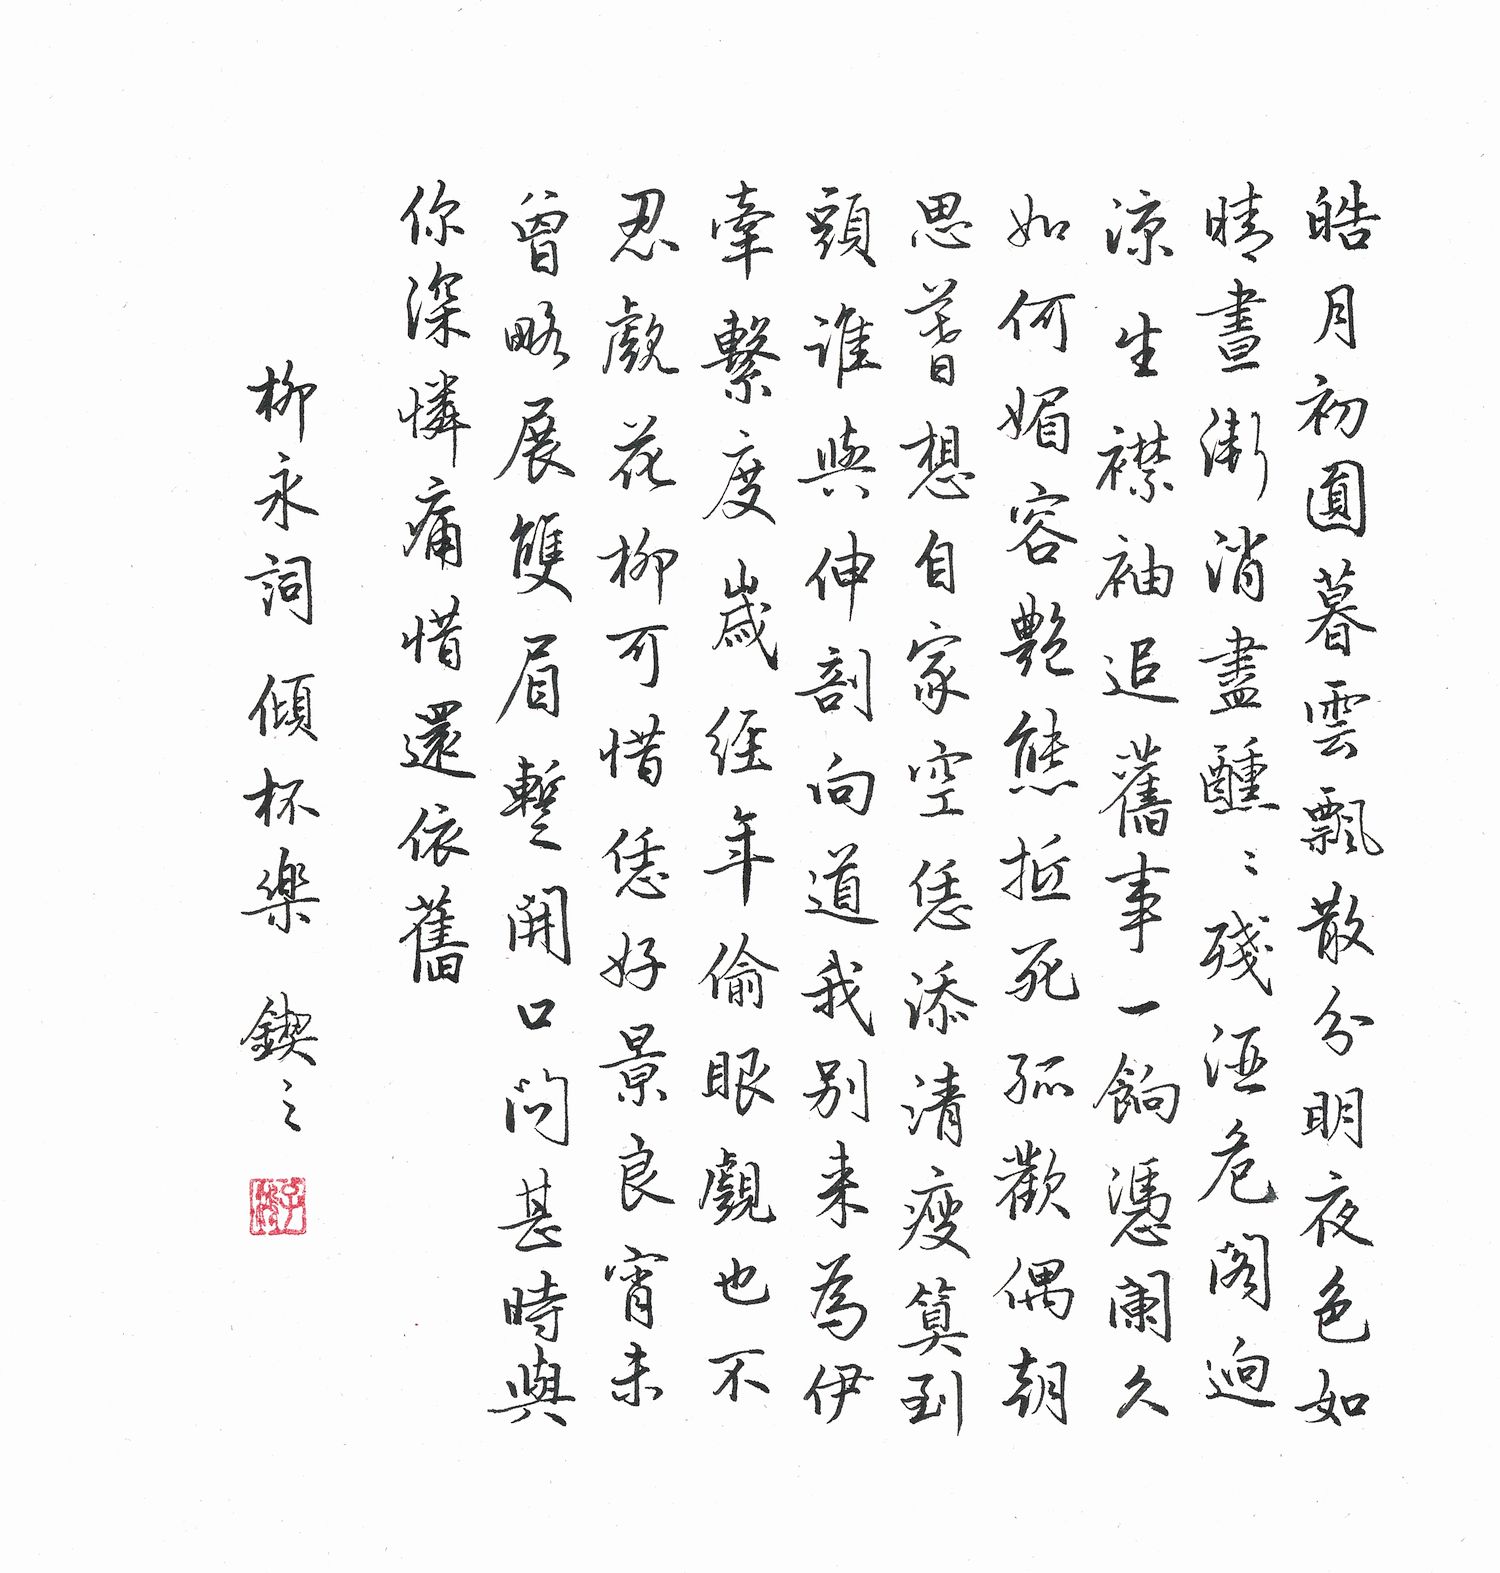 皓月初圓暮雲飄散分明夜色如
晴晝漸消盡醺〻殘酒危閣迥
涼生襟袖追舊事一餉憑闌久
如何媚容艷態抵死孤歡偶朝
思暮想自家空恁添清瘦算到
頭誰與伸剖向道我別來為伊
牽繫度歲經年偷眼覷也不
忍覷花柳可惜恁好景良宵未
曾略展雙眉暫開口問甚時與
你深憐痛惜還依舊
柳永詞 傾杯樂 鍥之